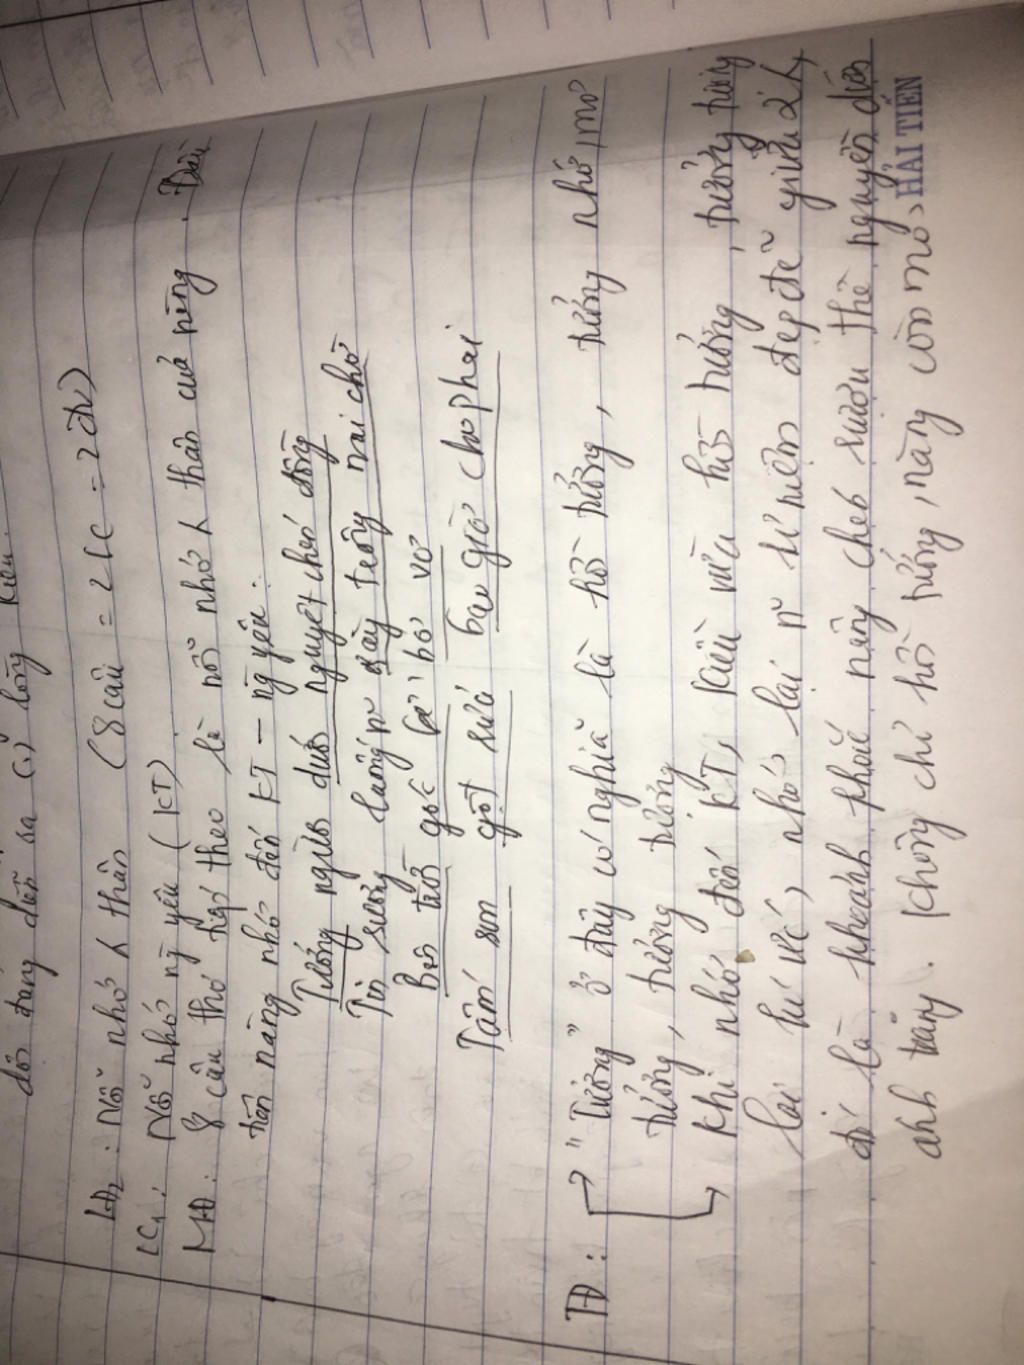 đôi đang diễn ra lòng Kiều.
LĐ2: Nỗi nhớ thân (8 câu = 2LC = 2đv)
LC1: Nỗi nhớ ng yêu (KT)
MĐ: 8 câu thơ tiếp theo là nỗi nhớ thân của nàng. Đầu
tiên nàng nhớ đến KT - ng yêu:
Tưởng người dưới nguyệt chén đồng
Tin sương luống n~ rày trông mai chờ
Bên trời góc bể bơ vơ
Tấm son gột rửa bao giờ cho phai
TĐ: → "Tưởng" ở đây có nghĩa là hồi tưởng, tưởng nhớ, mơ
tưởng, tưởng tượng
→ Khi nhớ đến KT, Kiều vừa hồi tưởng, tưởng tượng
lại kí ức, nhớ lại n~ kỉ niệm đẹp đẽ giữa 2
đó là khoảnh khắc nâng chén rượu thề nguyền dưới
ánh trăng. Không chỉ hồi tưởng, nàng còn mơ
HẢI TIẾN